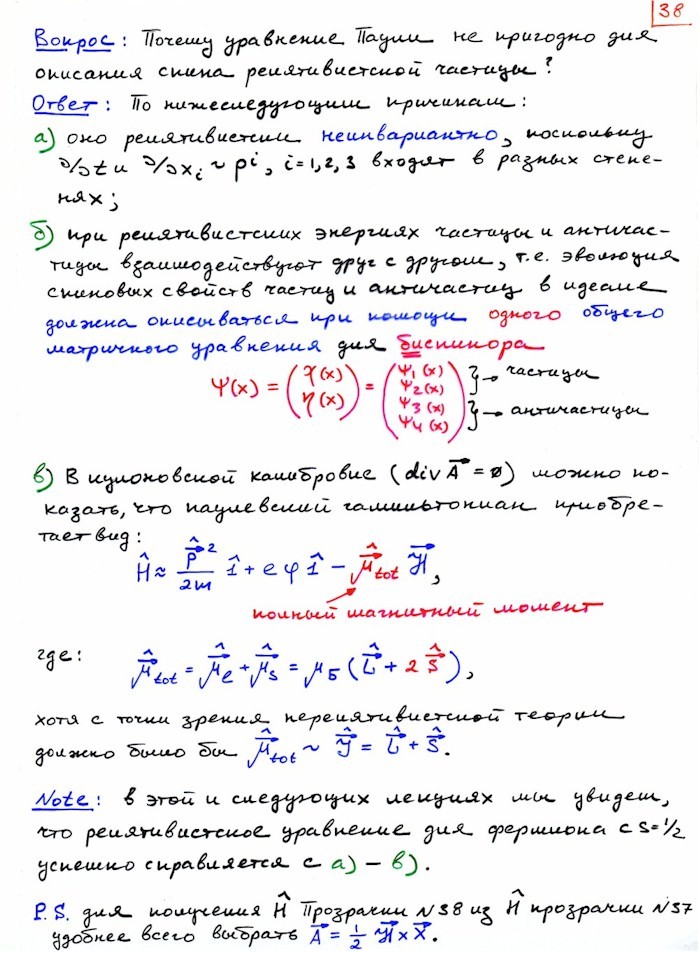 38
Вопрос: Почему уравнение Паули не пригодно для
описания спина релятивистской частицы?
Ответ: По нижеследующим причинам:
а) оно релятивистки неинвариантно, поскольку
∂/∂t и ∂/∂xᵢ ~ pⁱ, i=1,2,3 входят в разных степе-
нях;
б) при релятивистских энергиях частицы и античас-
тицы взаимодействуют друг с другом, т.е. эволюция
спиновых свойств частиц и античастиц в идеале
должна описываться при помощи одного общего
матричного уравнения для биспинора
Ψ(x) = (χ(x) η(x)) = (Ψ₁(x) Ψ₂(x) Ψ₃(x) Ψ₄(x)) } → частицы } → античастицы
в) В кулоновской калибровке (div A⃗ = ø) можно по-
казать, что паулевский гамильтониан приобре-
тает вид:
Ĥ ≈ p̂⃗²/2m 1̂ + eφ 1̂ − μ̂⃗tot ℋ⃗,
полный магнитный момент
где: μ̂⃗tot = μ̂⃗e + μ̂⃗s = μБ (L̂⃗ + 2 Ŝ⃗),
хотя с точки зрения нерелятивистской теории
должно было бы μ̂⃗tot ~ Ĵ⃗ = L̂⃗ + Ŝ⃗.
Note: в этой и следующих лекциях мы увидем,
что релятивистское уравнение для фермиона с s=1/2
успешно справляется с а) – в).
P.S. для получения Ĥ Прозрачки N38 из Ĥ прозрачки N37
удобнее всего выбрать A⃗ = ½ ℋ⃗ × x⃗.